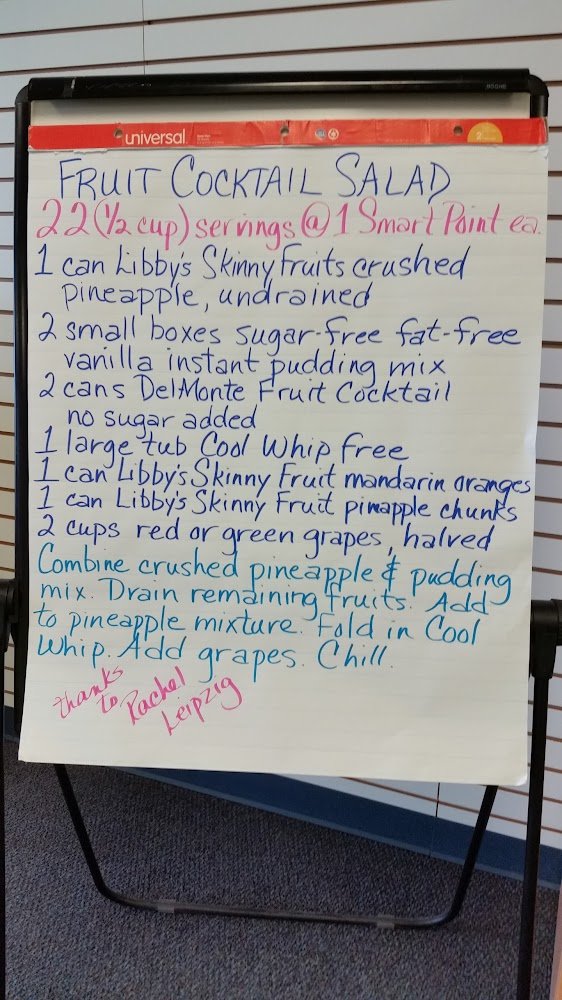 universal
FRUIT COCKTAIL SALAD
22 (1/2 cup) servings @ 1 Smart Point ea.
1 can Libby's Skinny Fruits crushed
pineapple, undrained
2 small boxes sugar-free fat-free
vanilla instant pudding mix
2 cans DelMonte Fruit Cocktail
no sugar added
1 large tub Cool Whip free
1 can Libby's Skinny Fruit mandarin oranges
1 can Libby's Skinny Fruit pineapple chunks
2 cups red or green grapes, halved
Combine crushed pineapple & pudding
mix. Drain remaining fruits. Add
to pineapple mixture. Fold in Cool
Whip. Add grapes. Chill.
thanks
to Rachel
Leipzig